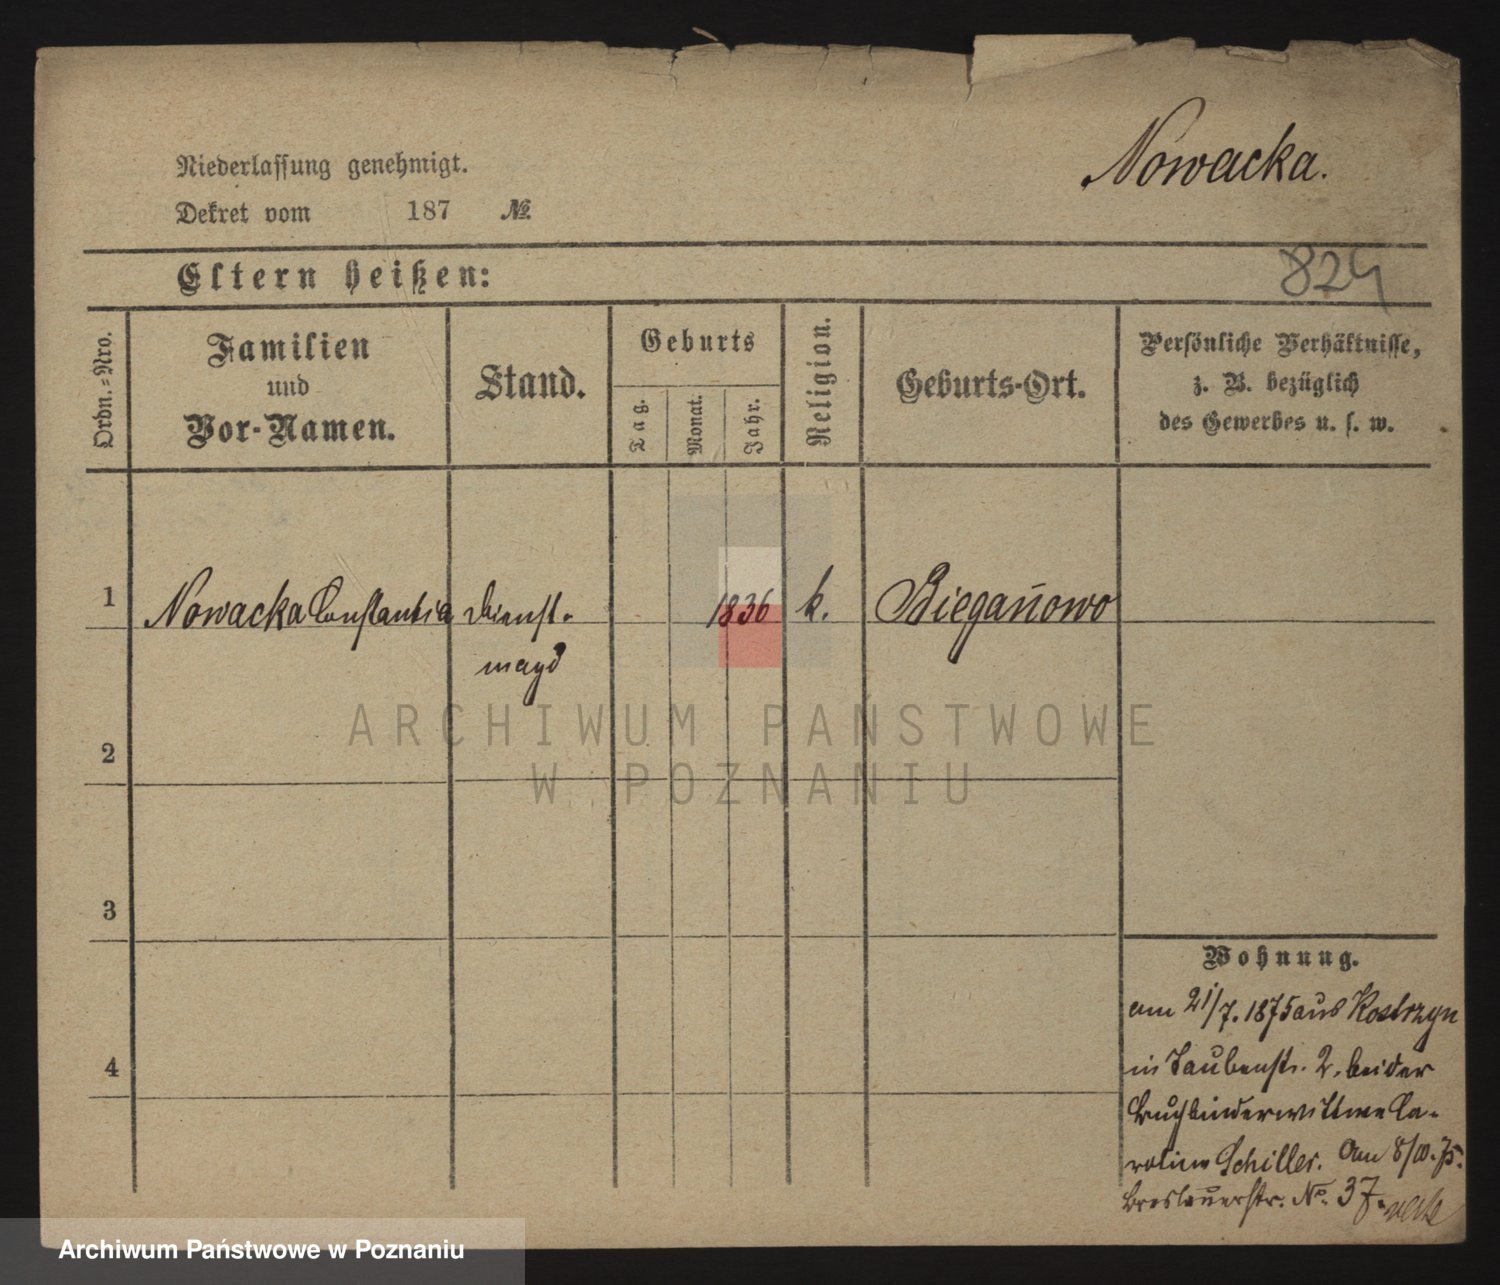 Nowacka.
Niederlassung genehmigt.
Dekret vom 187 №
Eltern heißen:
824
Ordn.-Nro.
Familien und Vor-Namen.
Stand.
Geburts
Tag.
Monat.
Jahr.
Religion.
Geburts-Ort.
Persönliche Verhältnisse,
z. B. bezüglich
des Gewerbes u. s. w.
1 Nowacka Constantia Dienst- 1836 k. Biegańowo
magd
ARCHIWUM PAŃSTWOWE
W POZNANIU
2
3
4
Wohnung.
am 21/7. 1875 aus Kostrzyn
in Taubenstr. 2. bei der
Buchbinderwittwe Ca-
roline Schiller. Am 8/10. 75.
Breslauerstr. No. 37.
Archiwum Państwowe w Poznaniu